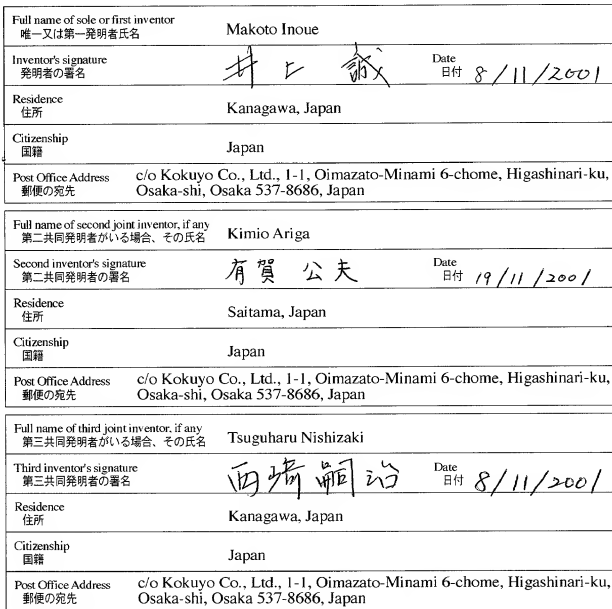 Full name of sole or first inventor
唯一又は第一発明者氏名
Makoto Inoue
Inventor's signature
発明者の署名
井上 誠
Date
日付
8/11/2001
Residence
住所
Kanagawa, Japan
Citizenship
国籍
Japan
Post Office Address
郵便の宛先
c/o Kokuyo Co., Ltd., 1-1, Oimazato-Minami 6-chome, Higashinari-ku,
Osaka-shi, Osaka 537-8686, Japan
Full name of second joint inventor, if any
第二共同発明者がいる場合、その氏名
Kimio Ariga
Second inventor's signature
第二共同発明者の署名
有賀 公夫
Date
日付
19/11/2001
Residence
住所
Saitama, Japan
Citizenship
国籍
Japan
Post Office Address
郵便の宛先
c/o Kokuyo Co., Ltd., 1-1, Oimazato-Minami 6-chome, Higashinari-ku,
Osaka-shi, Osaka 537-8686, Japan
Full name of third joint inventor, if any
第三共同発明者がいる場合、その氏名
Tsuguharu Nishizaki
Third inventor's signature
第三共同発明者の署名
西崎 嗣治
Date
日付
8/11/2001
Residence
住所
Kanagawa, Japan
Citizenship
国籍
Japan
Post Office Address
郵便の宛先
c/o Kokuyo Co., Ltd., 1-1, Oimazato-Minami 6-chome, Higashinari-ku,
Osaka-shi, Osaka 537-8686, Japan